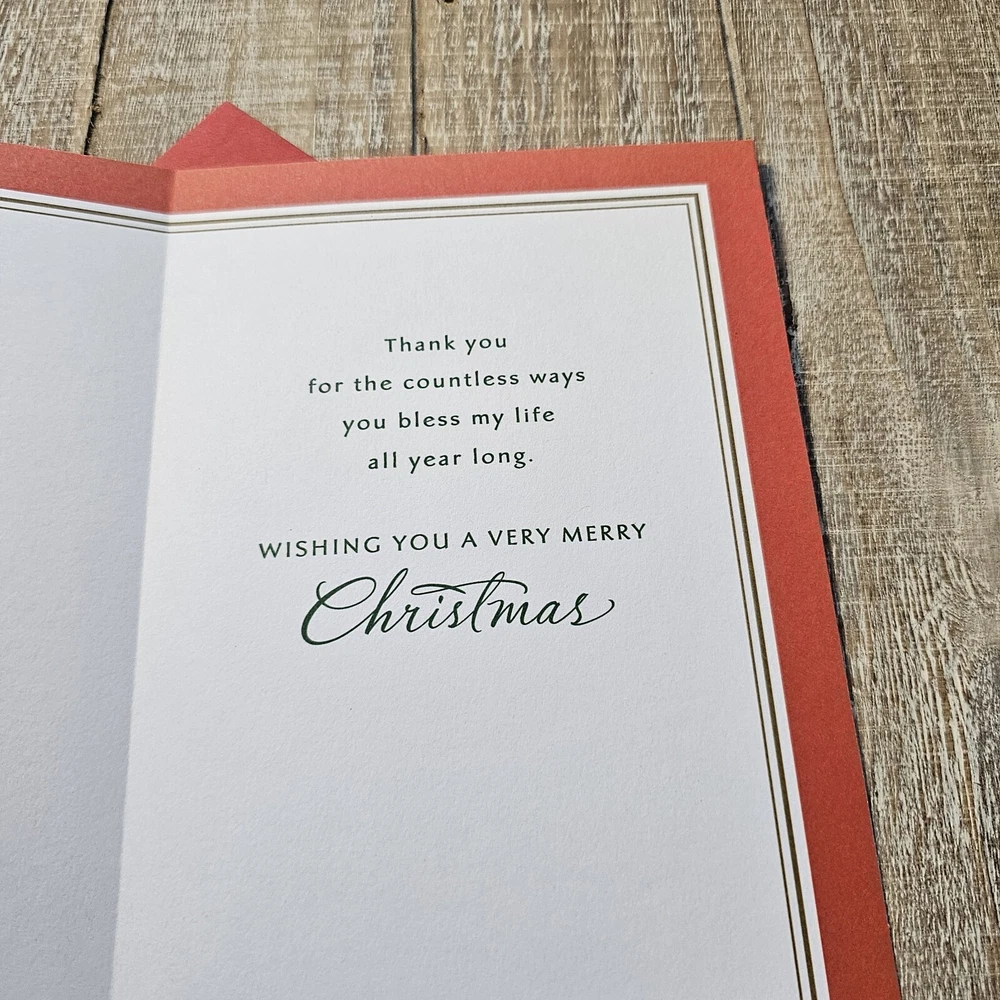 Thank you
for the countless ways
you bless my life
all year long.
WISHING YOU A VERY MERRY
Christmas